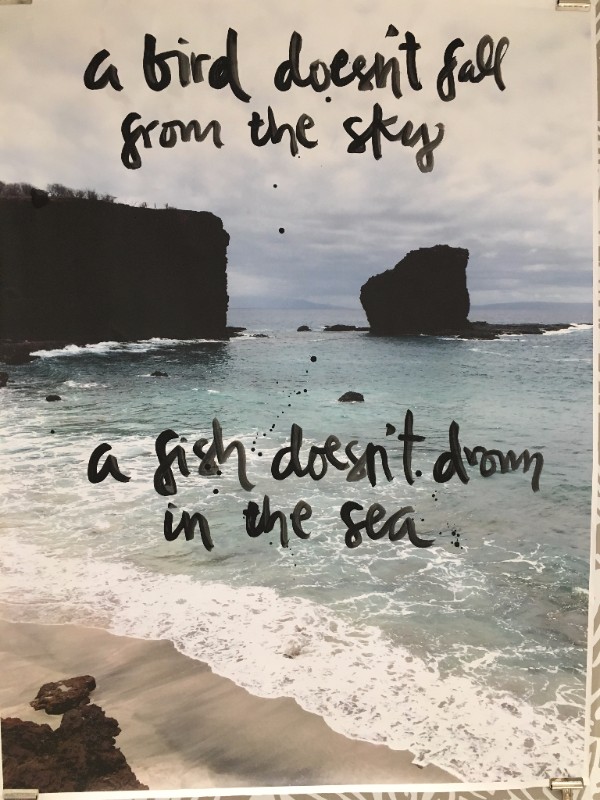 a bird doesn't fall
from the sky
a fish doesn't drown
in the sea